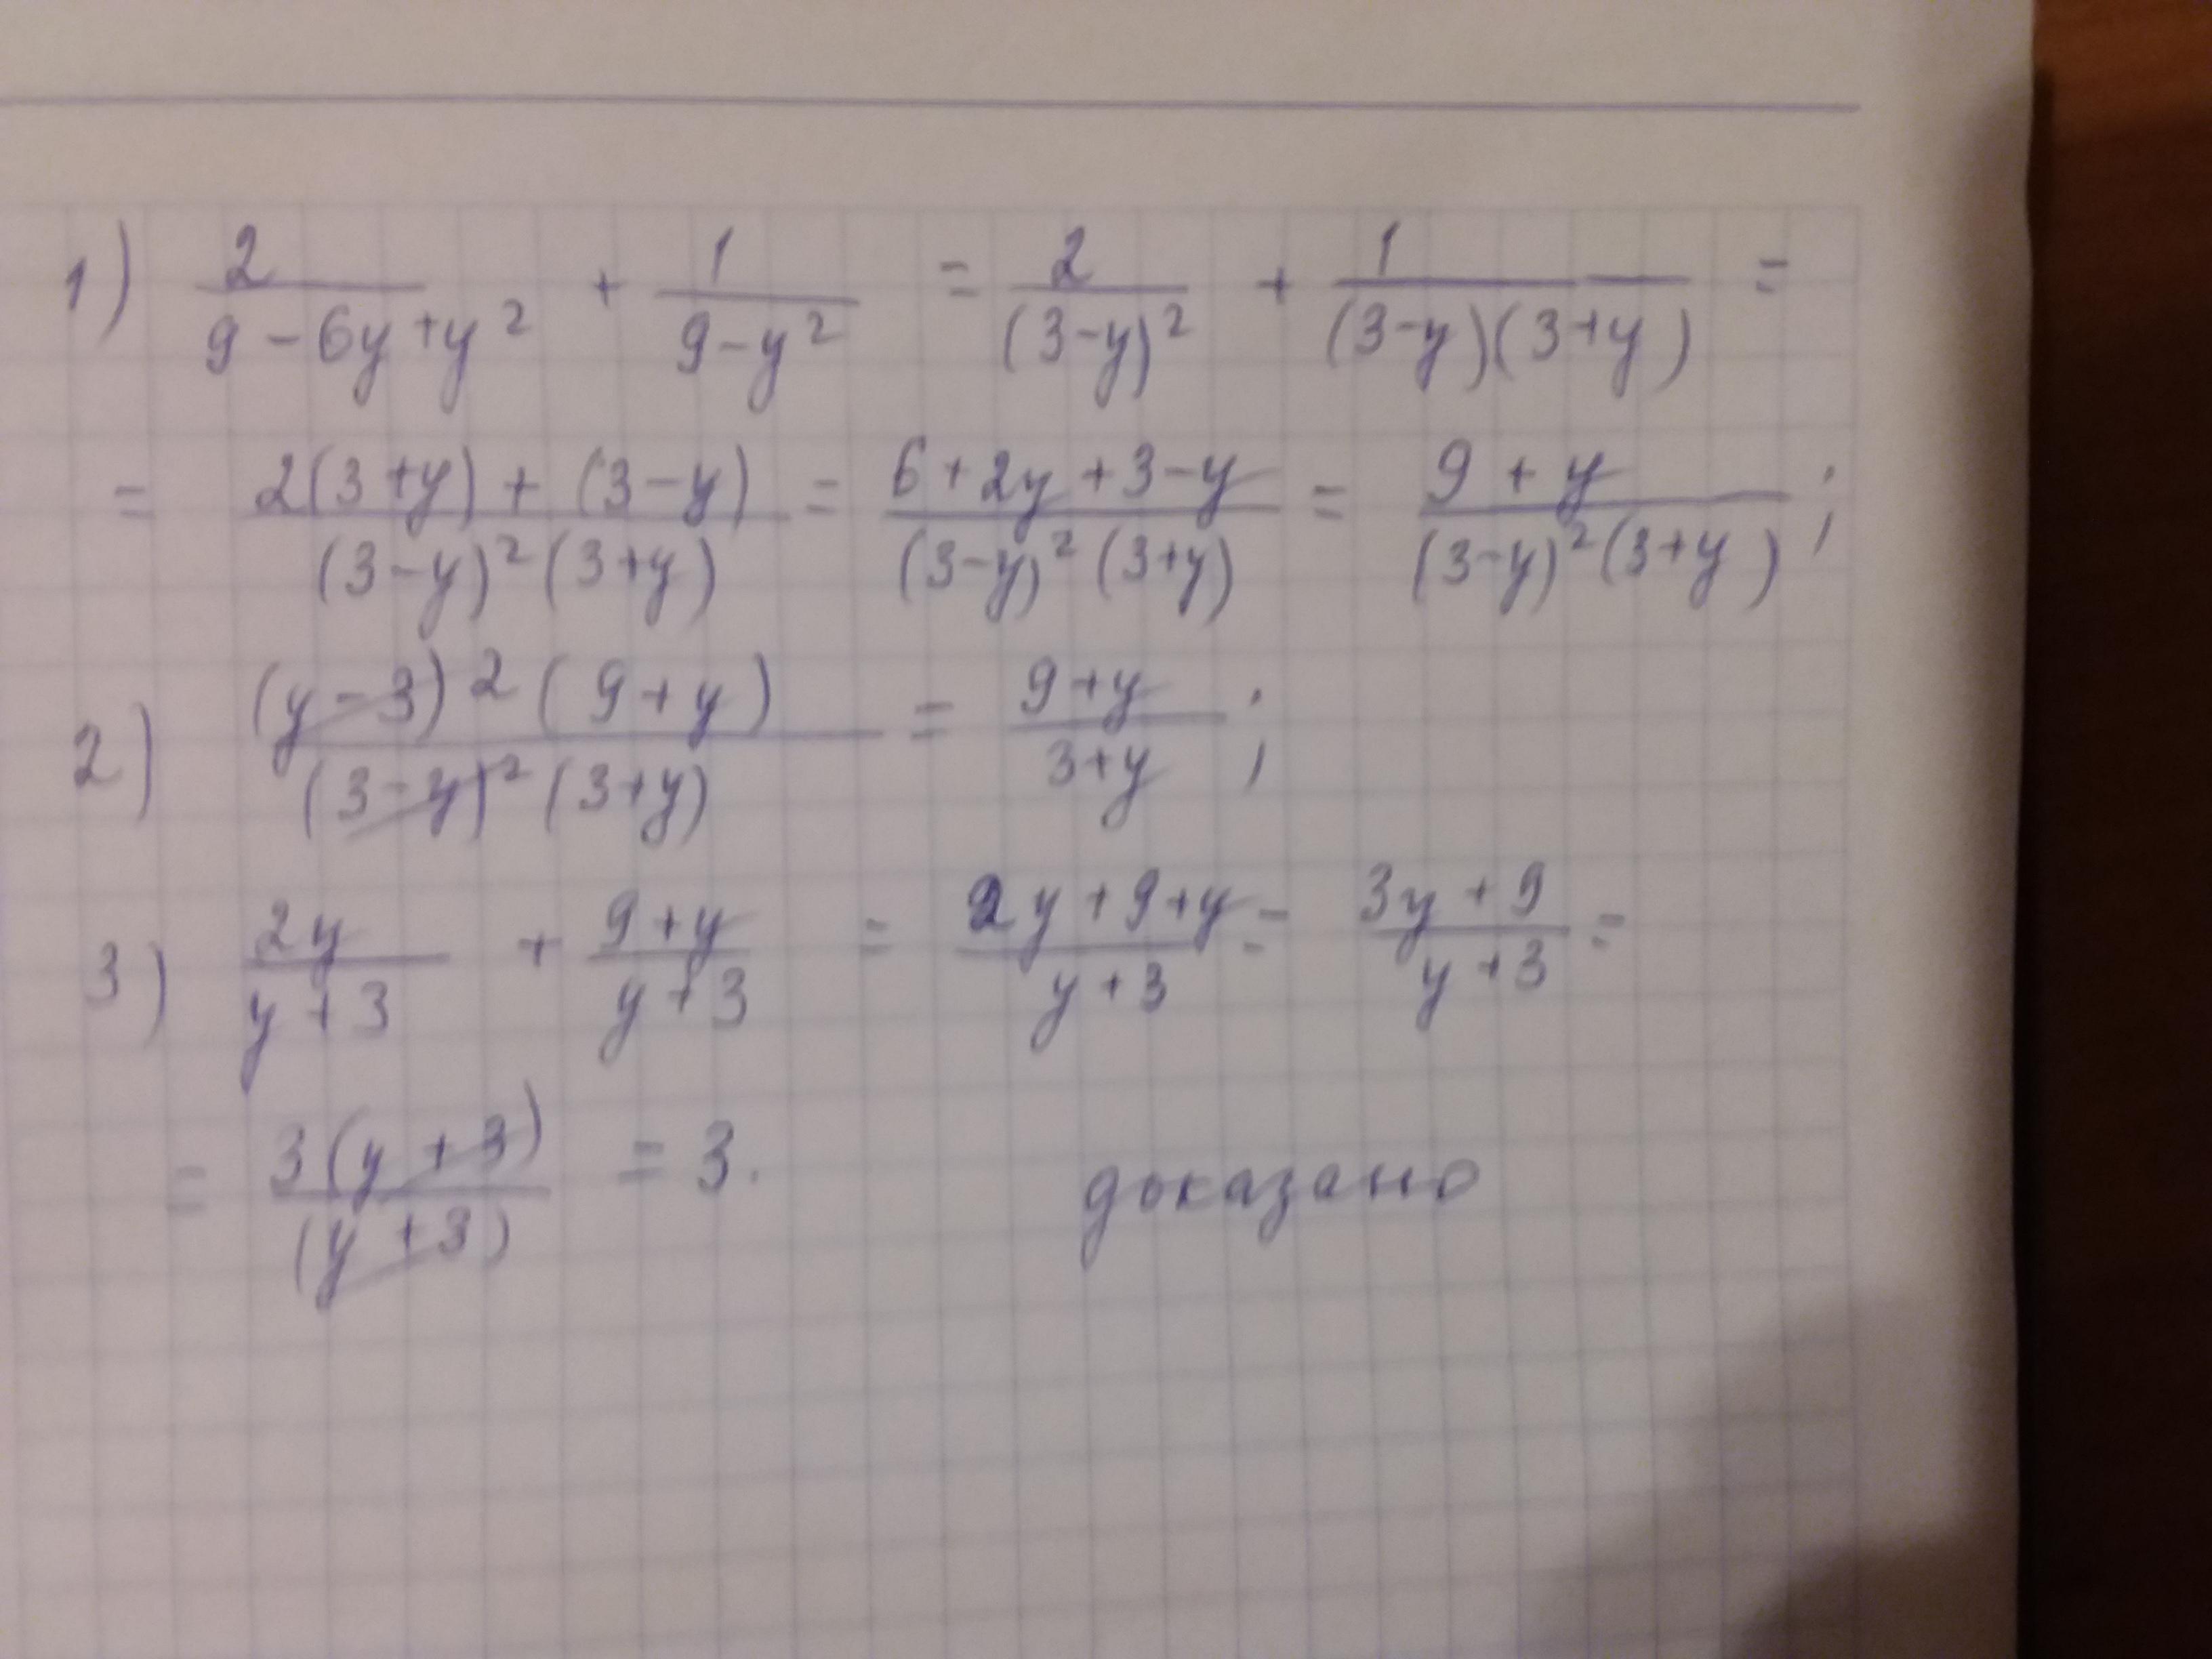 1) 2/(9-6y+y²) + 1/(9-y²) = 2/(3-y)² + 1/((3-y)(3+y)) =
= (2(3+y)+(3-y))/((3-y)²(3+y)) = (6+2y+3-y)/((3-y)²(3+y)) = (9+y)/((3-y)²(3+y));
2) ((y-3)²(9+y))/((3-y)²(3+y)) = (9+y)/(3+y);
3) 2y/(y+3) + (9+y)/(y+3) = (2y+9+y)/(y+3) = (3y+9)/(y+3) =
= 3(y+3)/(y+3) = 3. доказано